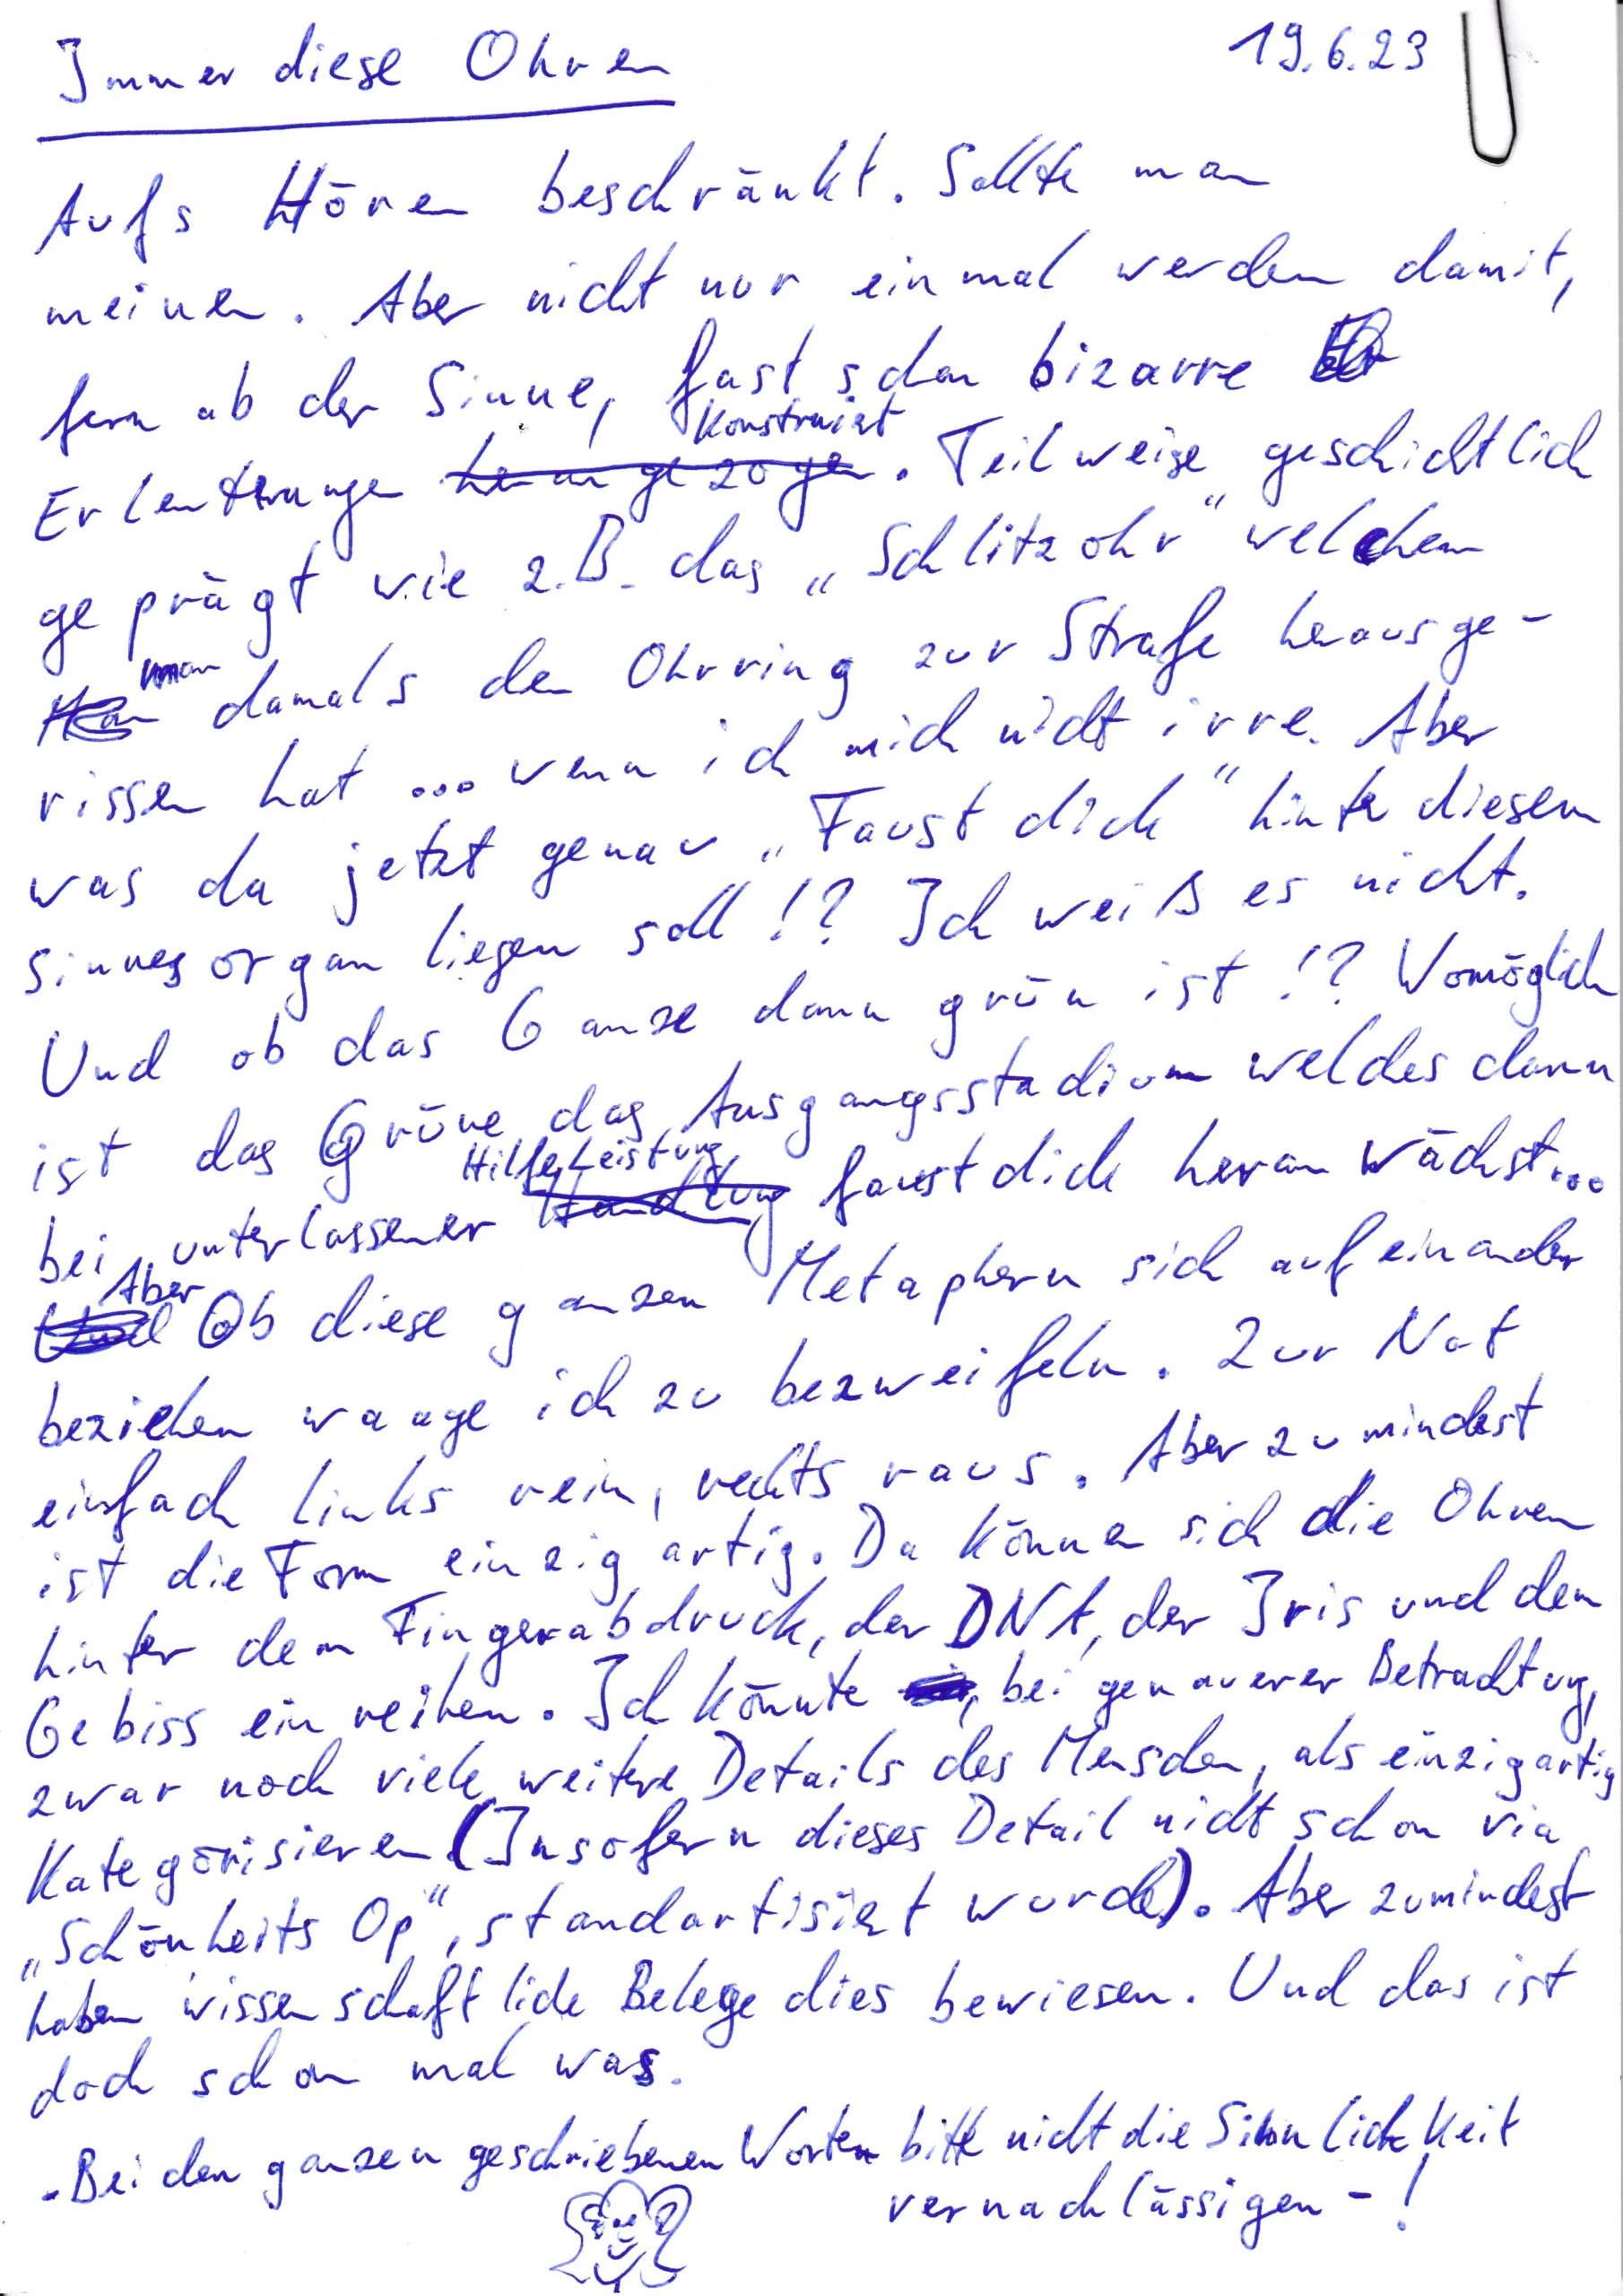 Immer diese Ohren
19.6.23
Aufs Hören beschränkt. Sollte man
meinen. Aber nicht nur einmal werden damit,
fern ab der Sinne, fast schon bizarre
Erleuterungen konstruiert. Teilweise geschichtlich
geprägt wie z.B. das „Schlitzohr" welchem
man damals den Ohrring zur Strafe herausge-
rissen hat ... wenn ich mich nicht irre. Aber
was da jetzt genau „Faust dick" hinter diesem
Sinnesorgan liegen soll!? Ich weiß es nicht.
Und ob das Ganze dann grün ist!? Womöglich
ist das Grüne das Ausgangsstadium welches dann
bei unterlassener Hilfeleistung faustdick heran wächst...
Aber Ob diese ganzen Metaphern sich aufeinander
beziehen waage ich zu bezweifeln. Zur Not
einfach links rein, rechts raus. Aber zumindest
ist die Form einzigartig. Da können sich die Ohren
hinter dem Fingerabdruck, der DNA, der Iris und dem
Gebiss ein reihen. Ich könnte, bei genauerer Betrachtung,
zwar noch viele weitere Details des Menschen, als einzigartig
Kategorisieren (Insofern dieses Detail nicht schon via
„Schönheits Op", standartisiert wurde). Aber zumindest
haben wissenschaftliche Belege dies bewiesen. Und das ist
doch schon mal was.
- Bei den ganzen geschriebenen Worten bitte nicht die Sinnlichkeit
vernachlässigen - !